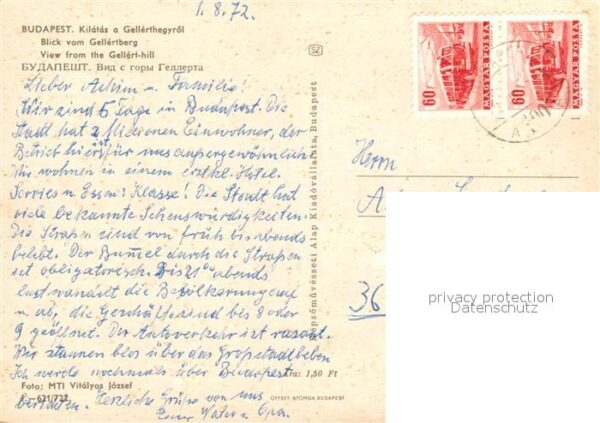 1.8.72.
BUDAPEST. Kilátás a Gellérthegyről
Blick vom Gellértberg
View from the Gellért-hill
БУДАПЕШТ. Вид с горы Геллерта
SZ
60f MAGYAR POSTA
60f MAGYAR POSTA
Lieber Achim u. Familie!
Wir sind 5 Tage in Budapest. Die
Stadt hat 2 Millionen Einwohner, der
Betrieb hier ist für uns aussergewöhnlich.
Wir wohnen in einem erstkl. Hotel.
Service u. Essen: Klasse! Die Stadt hat
viele bekannte Sehenswürdigkeiten.
Die Straßen sind von früh bis abends
belebt. Der Bummel durch die Straßen
ist obligatorisch. Bis 21°° abends
lustwandelt die Bevölkerung auf
u. ab, die Geschäfte sind bis 8 oder
9 geöffnet. Der Autoverkehr ist rasant.
Wir staunen blos über das Großstadtleben
Ich werde nochmals über Budapest
berichten. Herzliche Grüße von uns
Euer Vater u. Opa.
Ára: 1,50 Ft
Foto: MTI Vitályos József
621/722
OFFSET-NYOMDA BUDAPEST
Képzőművészeti Alap Kiadóvállalata, Budapest
Herrn
36
privacy protection
Datenschutz